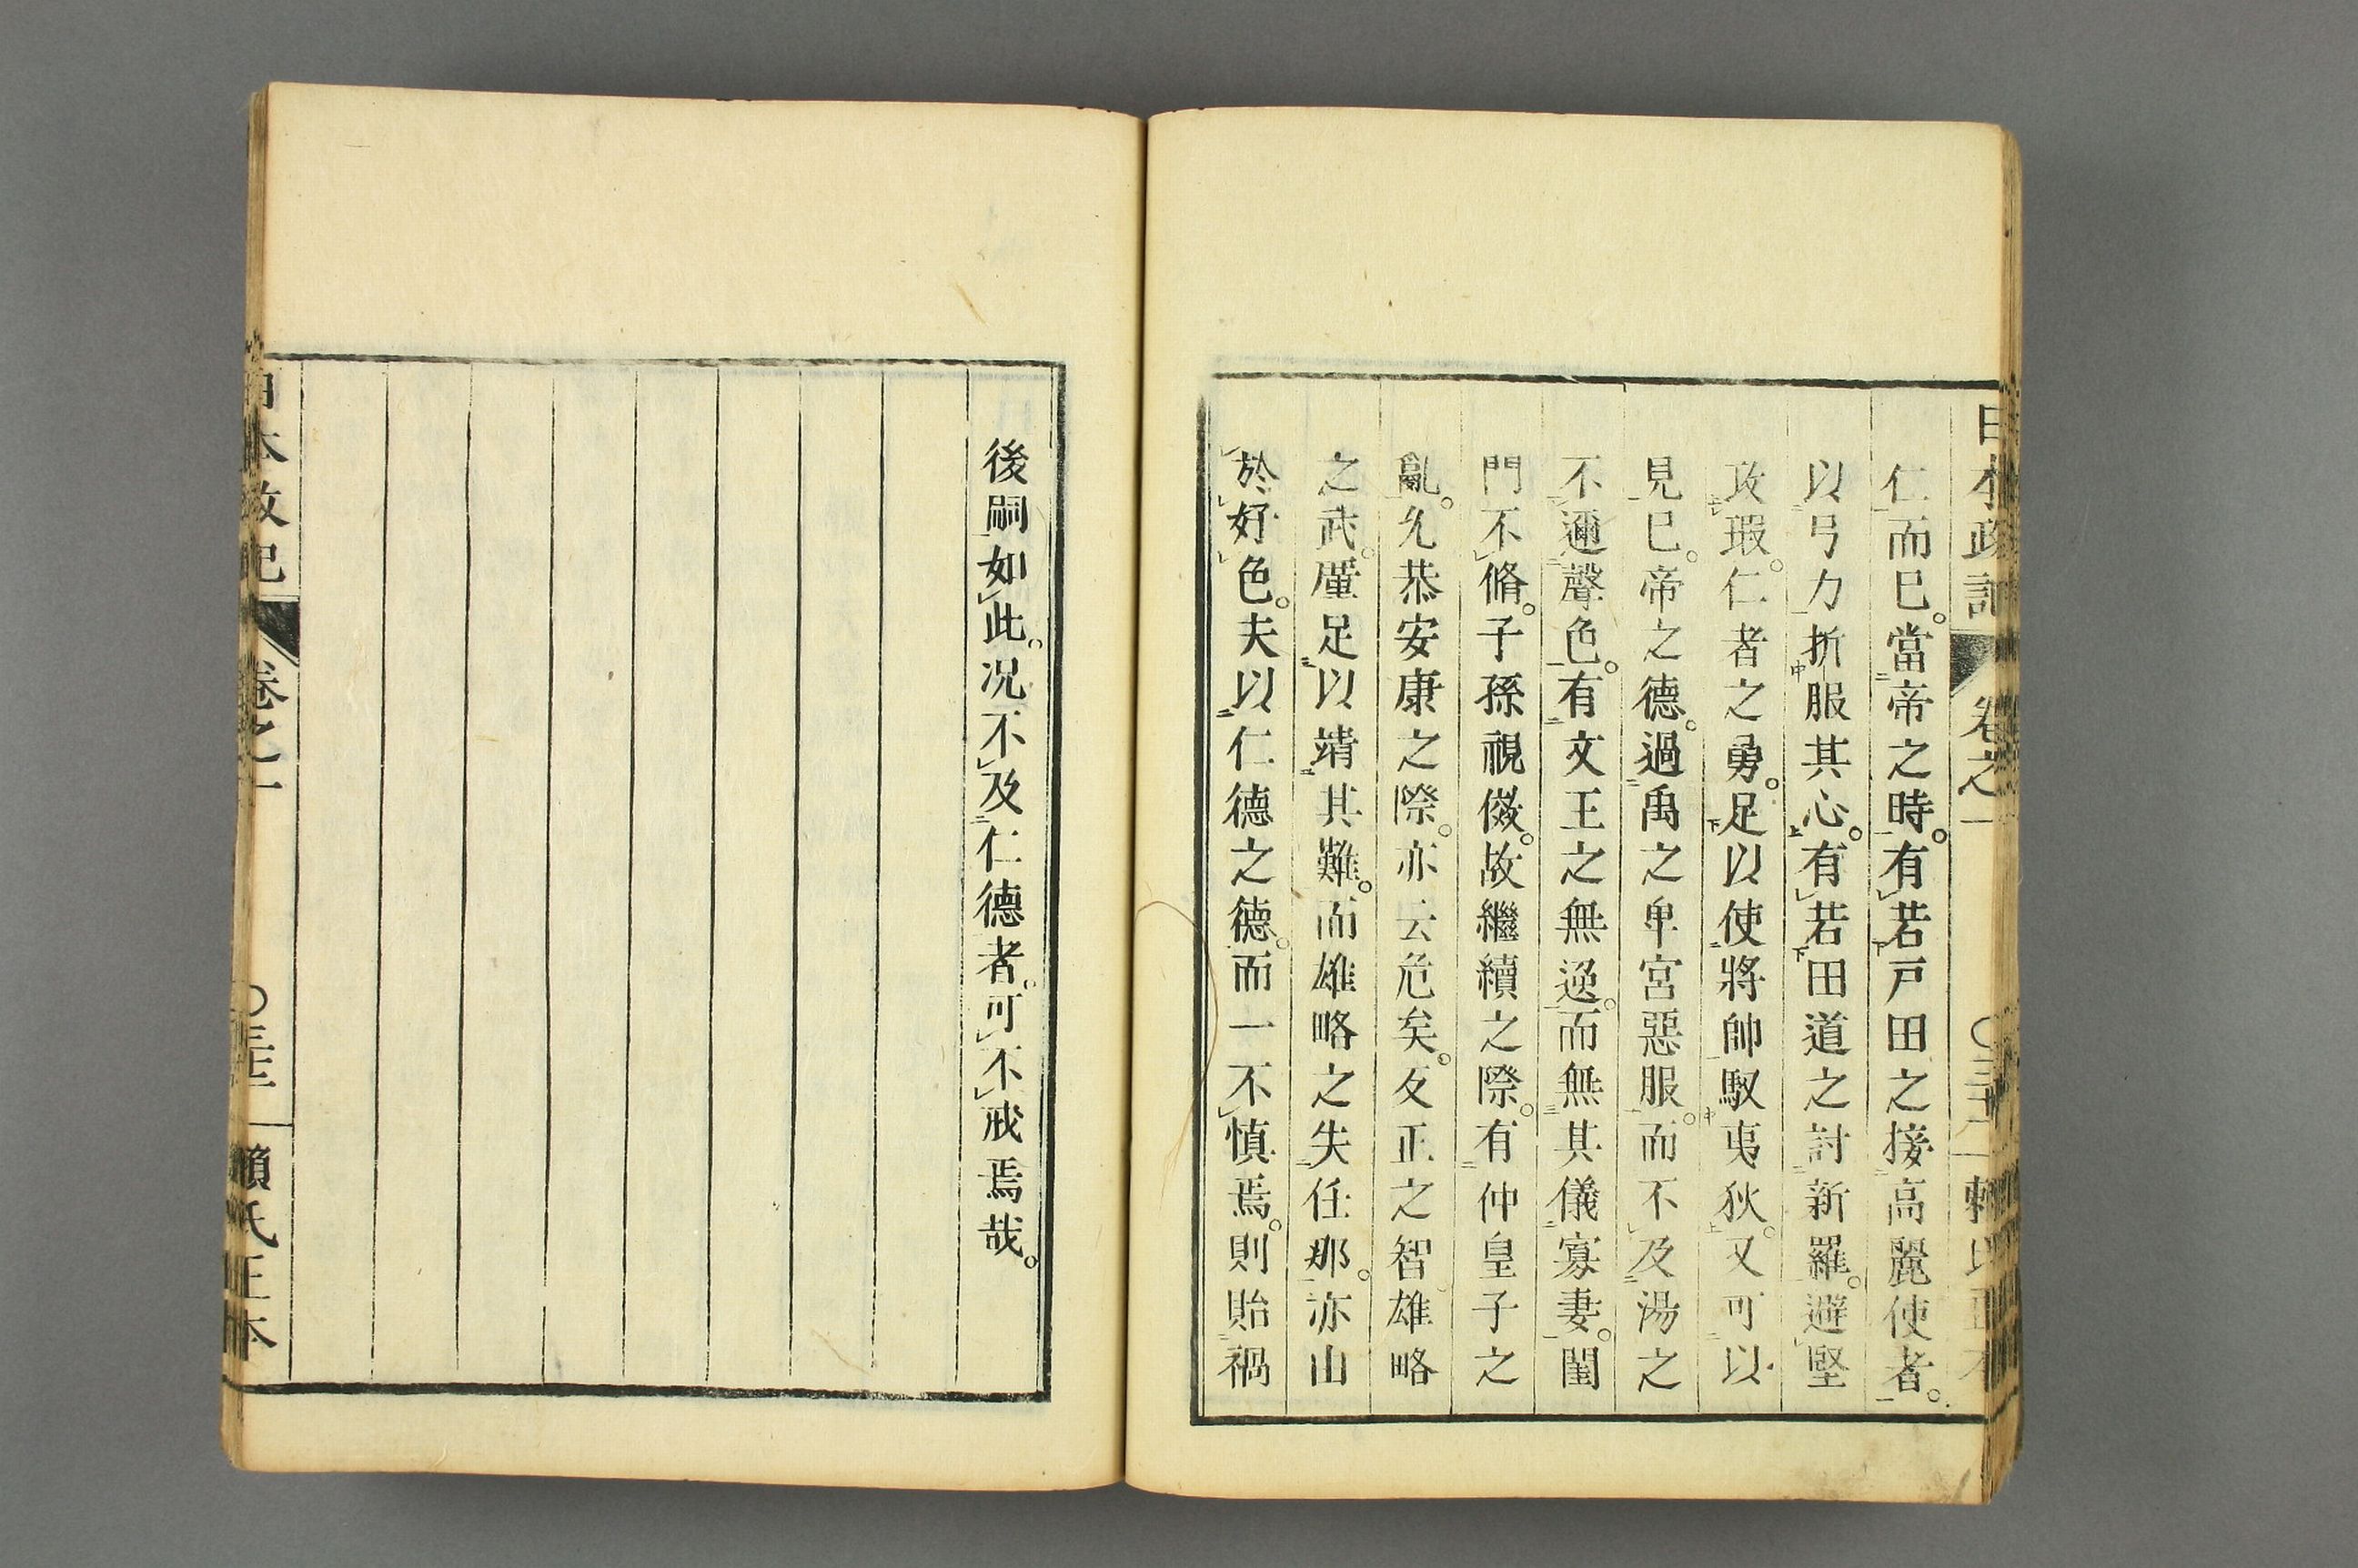 日本政記
卷之一
仁而已。當帝之時。有若戸田之接高麗使者。
以弓力折服其心。有若田道之討新羅。避堅
攻瑕。仁者之勇。足以使將帥馭夷狄。又可以
見已。帝之德。過禹之卑宮惡服。而不及湯之
不邇聲色。有文王之無逸。而無其儀寡妻。閨
門不脩。子孫視傚。故繼續之際。有仲皇子之
亂。允恭安康之際。亦云危矣。反正之智。雄略
之武。厪足以靖其難。而雄略之失任那。亦由
於好色。夫以仁德之德。而一不慎焉。則貽禍
後嗣如此。况不及仁德者。可不戒焉哉。
日本政記
卷之一
賴氏正本